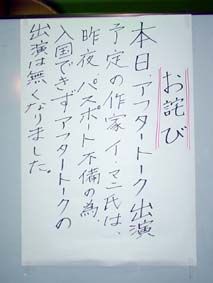 お詫び
本日、アフタートーク出演
予定の作家イ・マニ氏は、
昨夜、パスポート不備の為、
入国できず、アフタートークの
出演は無くなりました。